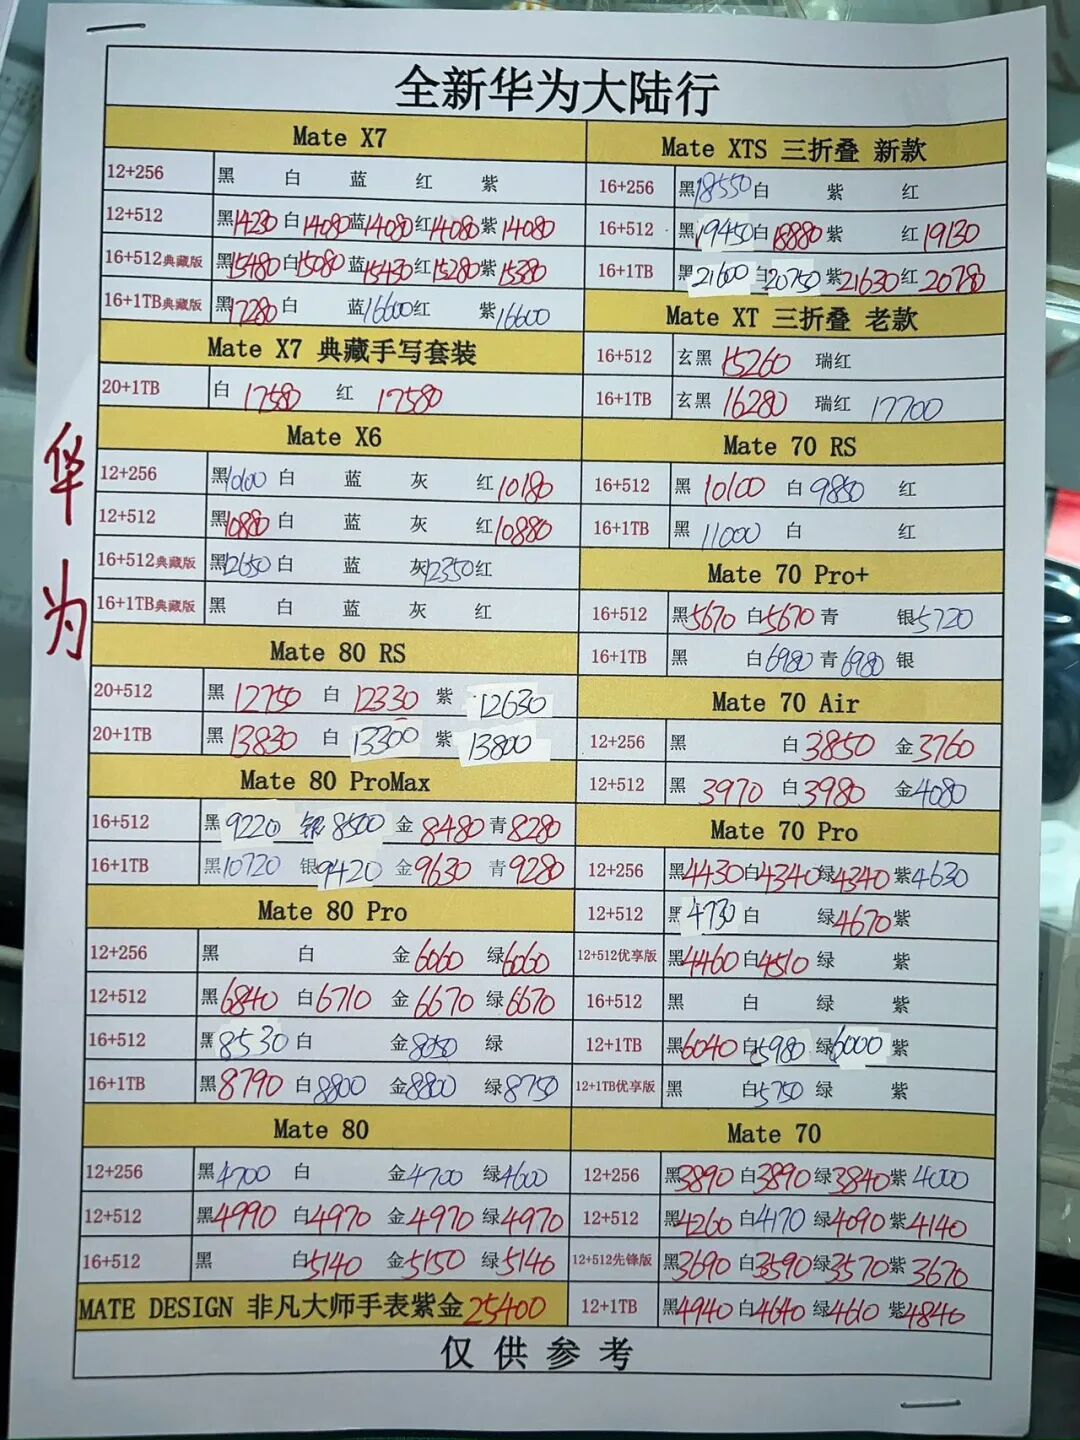 全新华为大陆行
华为
Mate X7
12+256 黑 白 蓝 红 紫
12+512 黑14230 白14080 蓝14080 红14080 紫14080
16+512典藏版 黑15480 白15080 蓝15430 红15280 紫15380
16+1TB典藏版 黑17280 白 蓝16600 红 紫16600
Mate X7 典藏手写套装
20+1TB 白 17580 红 17580
Mate X6
12+256 黑10100 白 蓝 灰 红10180
12+512 黑10880 白 蓝 灰 红10880
16+512典藏版 黑12650 白 蓝 灰12350 红
16+1TB典藏版 黑 白 蓝 灰 红
Mate 80 RS
20+512 黑 12750 白 12330 紫 12630
20+1TB 黑 13830 白 13300 紫 13800
Mate 80 ProMax
16+512 黑 9220 银 8500 金 8480 青 8280
16+1TB 黑 10720 银 9420 金 9630 青 9280
Mate 80 Pro
12+256 黑 白 金 6060 绿 6060
12+512 黑 6840 白 6710 金 6670 绿 6670
16+512 黑 8530 白 金 8050 绿
16+1TB 黑 8790 白 8800 金 8800 绿 8750
Mate 80
12+256 黑 4700 白 金 4700 绿 4600
12+512 黑 4990 白 4970 金 4970 绿 4970
16+512 黑 白 5140 金 5150 绿 5140
MATE DESIGN 非凡大师手表紫金 25400
Mate XTS 三折叠 新款
16+256 黑18550 白 紫 红
16+512 黑19450 白18880 紫 红19130
16+1TB 黑21600 白20750 紫21630 红20780
Mate XT 三折叠 老款
16+512 玄黑 15260 瑞红
16+1TB 玄黑 16280 瑞红 17700
Mate 70 RS
16+512 黑 10100 白 9850 红
16+1TB 黑 11000 白 红
Mate 70 Pro+
16+512 黑5670 白5670 青 银5720
16+1TB 黑 白6980 青6980 银
Mate 70 Air
12+256 黑 白3850 金3760
12+512 黑 3970 白3980 金4080
Mate 70 Pro
12+256 黑4430 白4340 绿4340 紫4630
12+512 黑4730 白 绿4670 紫
12+512优享版 黑4460 白4510 绿 紫
16+512 黑 白 绿 紫
12+1TB 黑6040 白5980 绿6000 紫
12+1TB优享版 黑 白5750 绿 紫
Mate 70
12+256 黑3890 白3890 绿3840 紫4000
12+512 黑4260 白4170 绿4090 紫4140
12+512先锋版 黑3690 白3590 绿3570 紫3670
12+1TB 黑4940 白4640 绿4610 紫4840
仅供参考